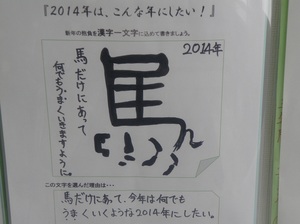 『2014年は、こんな年にしたい！』
新年の抱負を漢字一文字に込めて書きましょう。
2014年
馬
馬だけにあって
何でもうまくいきますように。
この文字を選んだ理由は・・・
馬だけにあって、今年は何でも
うまくいくような2014年にしたい。